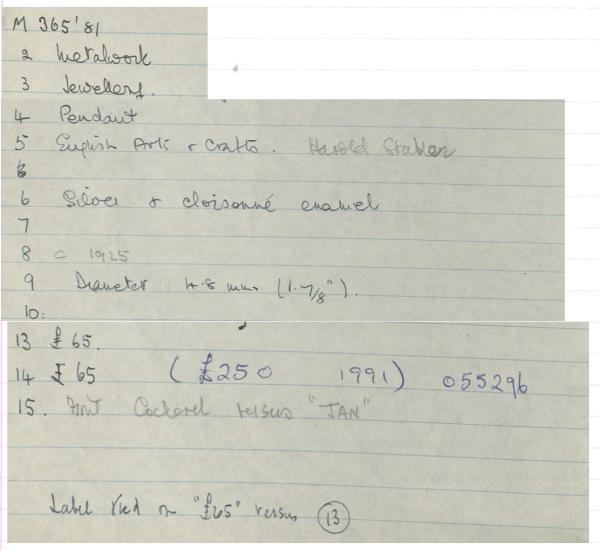 M 365'81
2 Metalwork
3 Jewellery.
4 Pendant
5 English Arts & Crafts. Harold Stabler
6
6 Silver & cloisonné enamel
7
8 c 1925
9 Diameter 4.8 mm. (1.7/8").
10.
13 £65.
14 £65 (£250 1991) 055296
15. Front Cockerel versus "JAN"
Label tied on "£65" versus 13